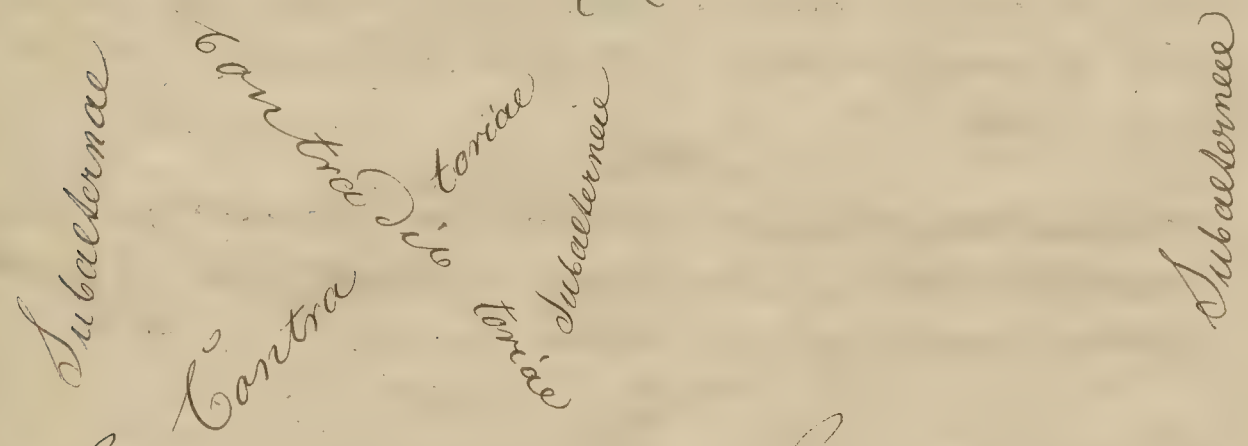 Subalternae
Contra
toriae
toriae
Subalternae
Subalternae